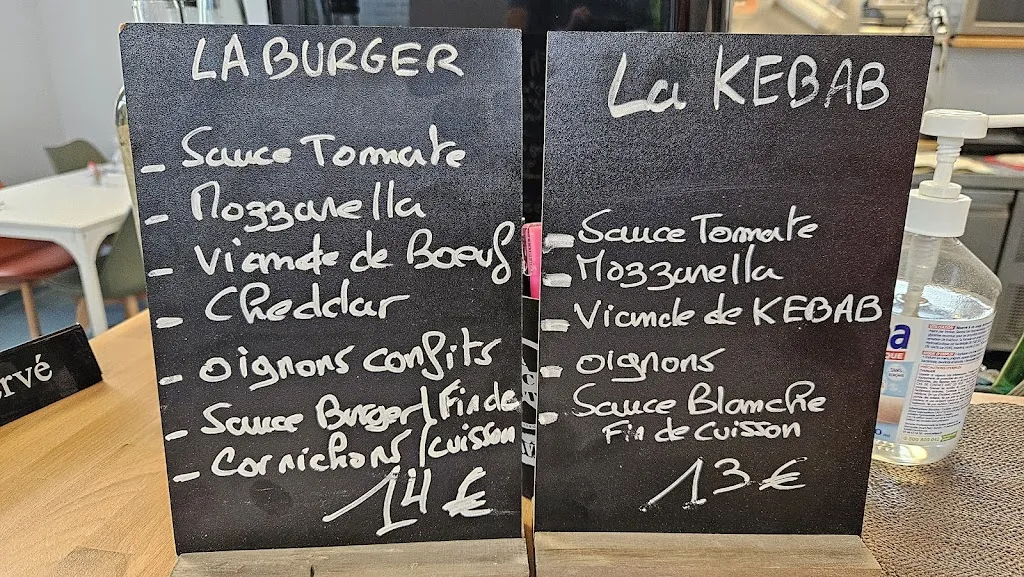 LA BURGER
- Sauce Tomate
- Mozzarella
- Viande de Boeuf
- Cheddar
- oignons confits
- Sauce Burger / Fin de
- Cornichons / cuisson
14 €
La KEBAB
- Sauce Tomate
- Mozzarella
- Viande de KEBAB
- oignons
- Sauce Blanche
Fin de cuisson
13 €
rvé